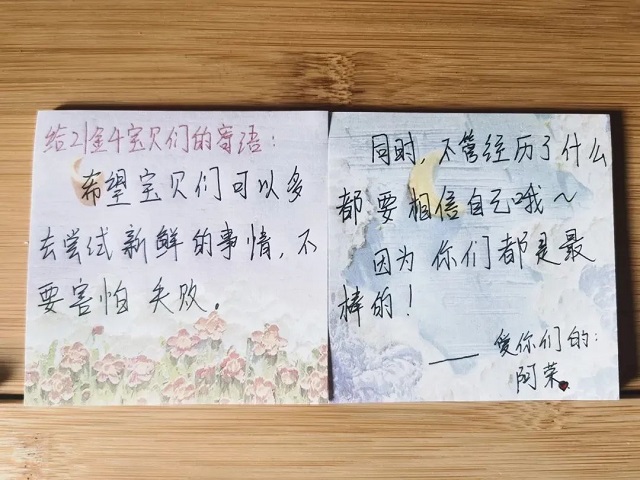 给21金4宝贝们的寄语：
希望宝贝们可以多
去尝试新鲜的事情，不
要害怕失败。
同时，不管经历了什么
都要相信自己哦～
因为你们都是最
棒的！
——爱你们的：
阿荣